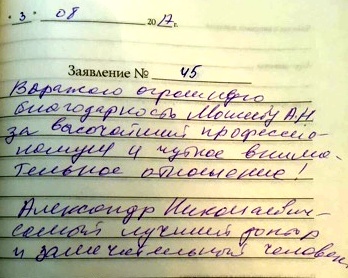 « 3 » 08 2017 г.
Заявление № 45
Выражаю огромную
благодарность А.Н.
за высочайший профессио-
нализм и чуткое внима-
тельное отношение!
Александр Николаевич -
самый лучший доктор
и замечательный человек.